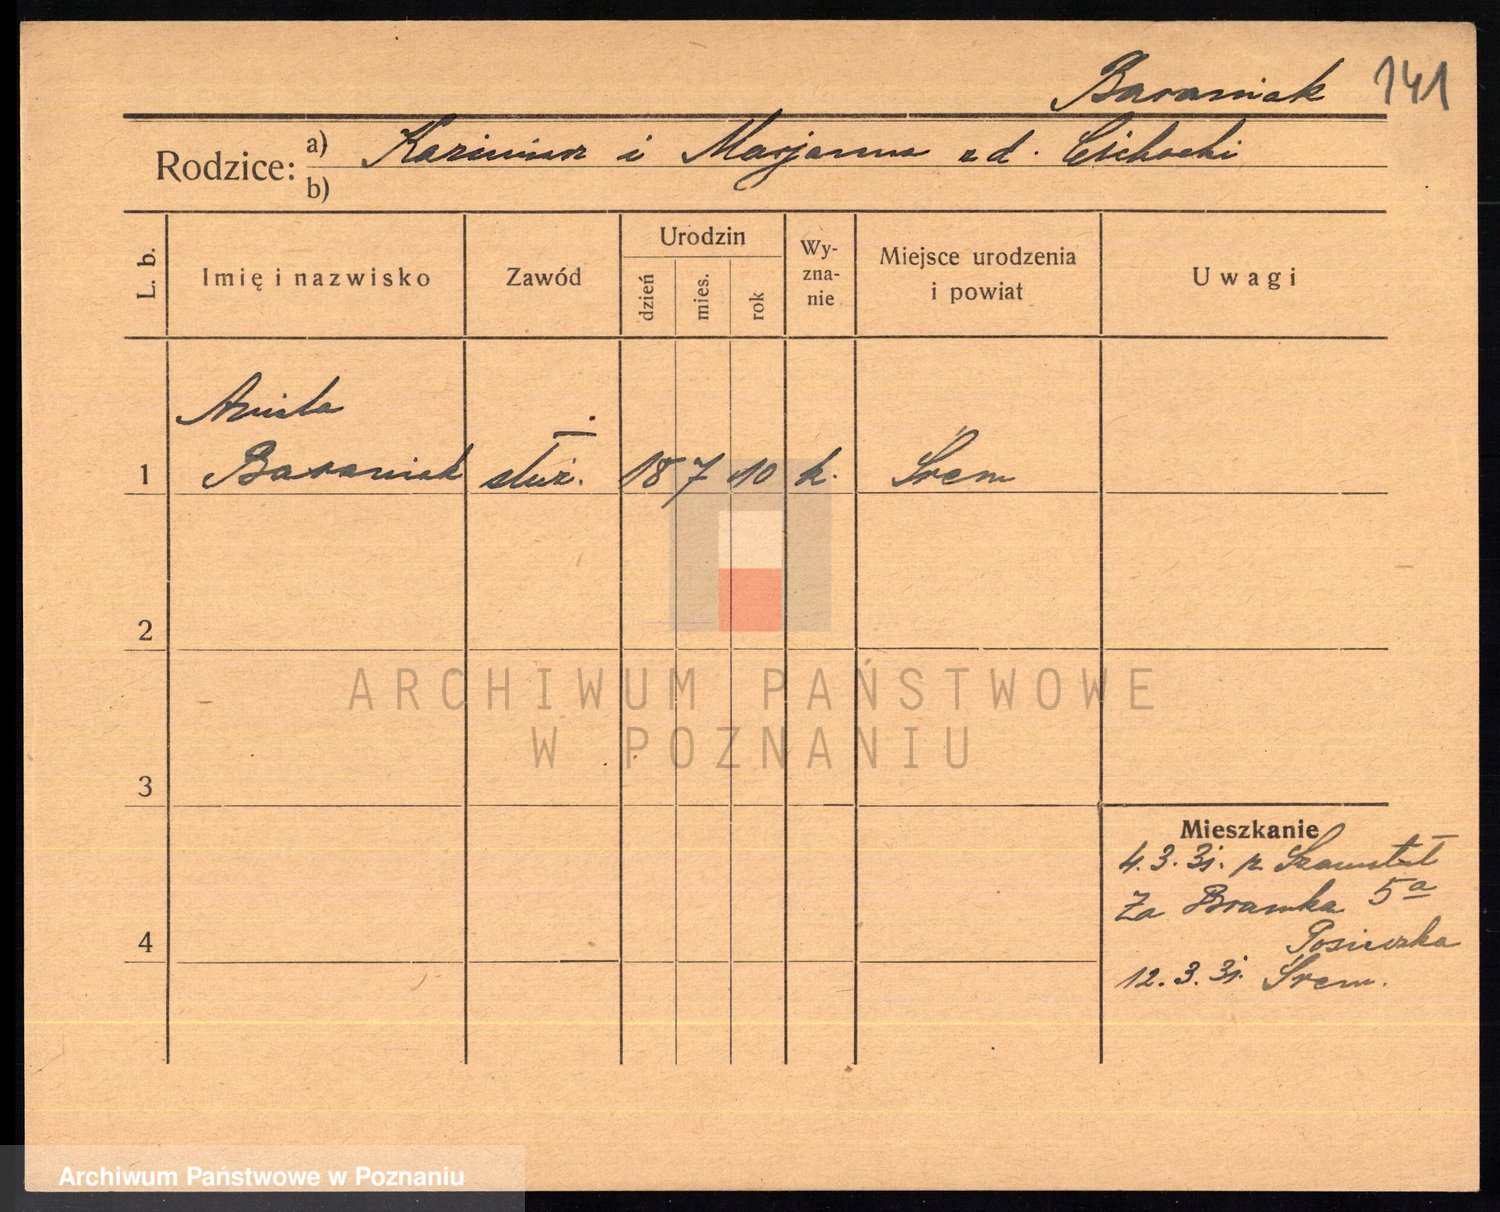 Baraniak 141
Rodzice: a) Kazimierz i Marjanna z d. Cichocki
b)
L. b.
Imię i nazwisko
Zawód
Urodzin
dzień
mies.
rok
Wy-
zna-
nie
Miejsce urodzenia
i powiat
Uwagi
Aniela
1 Baraniak służ. 18 7 10 k. Śrem
2
ARCHIWUM PAŃSTWOWE
W POZNANIU
3
Mieszkanie
4. 3. 31. z
Za Bramka 5a
4
12. 3. 31. Śrem.
Archiwum Państwowe w Poznaniu